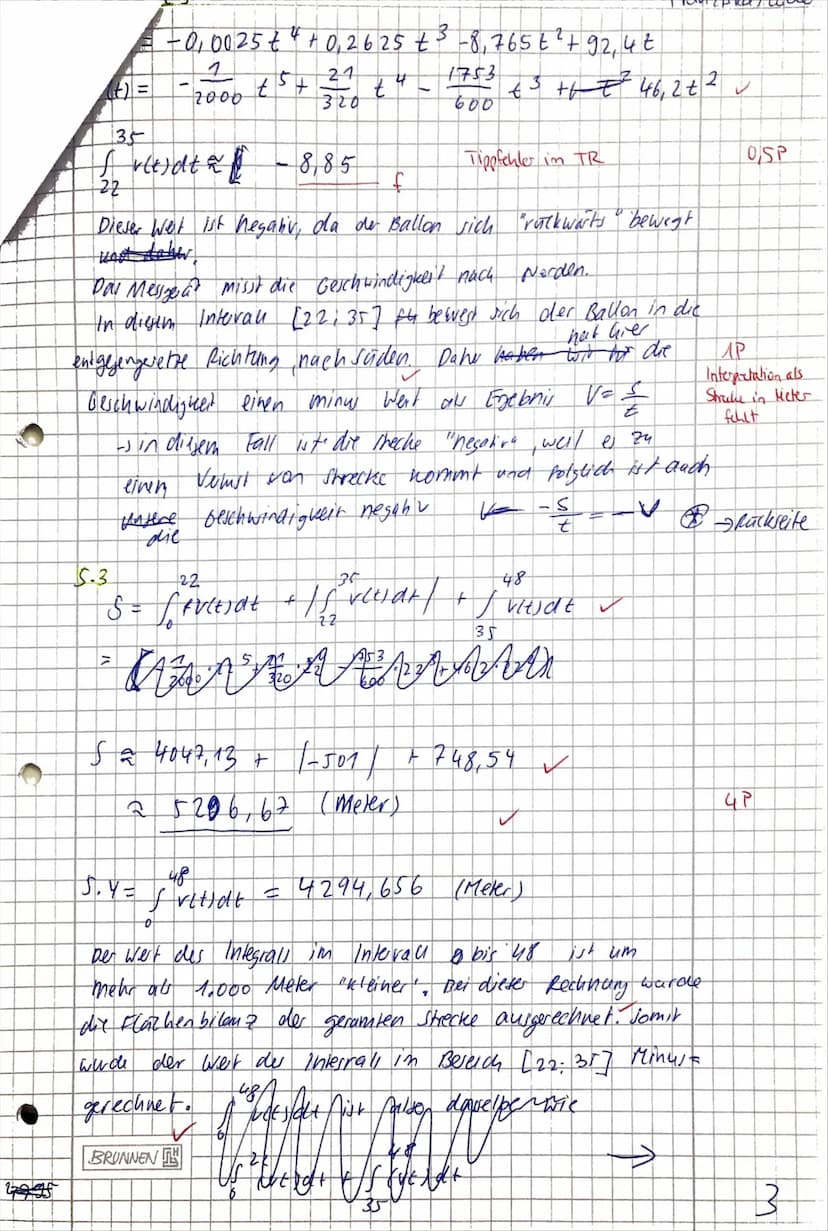 = -0,0025t⁴ + 0,2625t³ - 8,765t² + 92,4t
(t) = - 1/2000 t⁵ + 21/320 t⁴ - 1753/600 t³ + 46,2t² ✓
∫₂₂³⁵ v(t)dt ≈ - 8,85 f Tippfehler im TR 0,5P
Dieser Wert ist negativ, da der Ballon sich "rückwärts" bewegt
und daher,
Das Messgerät misst die Geschwindigkeit nach Norden.
In diesem Intervall [22; 35] bewegt sich der Ballon in die
entgegengesetze Richtung, nach Süden. Daher hat hier die ✓
1P
Interpretation als
Strecke in Meter
fehlt
Geschwindigkeit einen minus Wert als Ergebnis V = s/t
→ in diesem Fall ist die Strecke "negativ", weil es zu
einem Verlust von Strecke kommt und folglich ist auch
unsere
die Geschwindigkeit negativ -s/t = -V ⊛ → Rückseite
5.3
S = ∫₀²² v(t)dt + |∫₂₂³⁵ v(t)dt| + ∫₃₅⁴⁸ v(t)dt ✓
=
S ≈ 4047,13 + |-501| + 748,54 ✓
≈ 5296,67 (Meter) ✓ 4P
5.4 = ∫₀⁴⁸ v(t)dt = 4294,656 (Meter)
Der Wert des Integrals im Intervall 0 bis 48 ist um
mehr als 1.000 Meter "kleiner". Bei dieser Rechnung wurde
die Flächenbilanz der gesamten Strecke ausgerechnet. ✓ Somit
wurde der Wert des Integrals im Bereich [22; 35] Minus=
gerechnet. ✓ ∫₀⁴⁸ v(t)dt ist also dasselbe wie
BRUNNEN
→
3